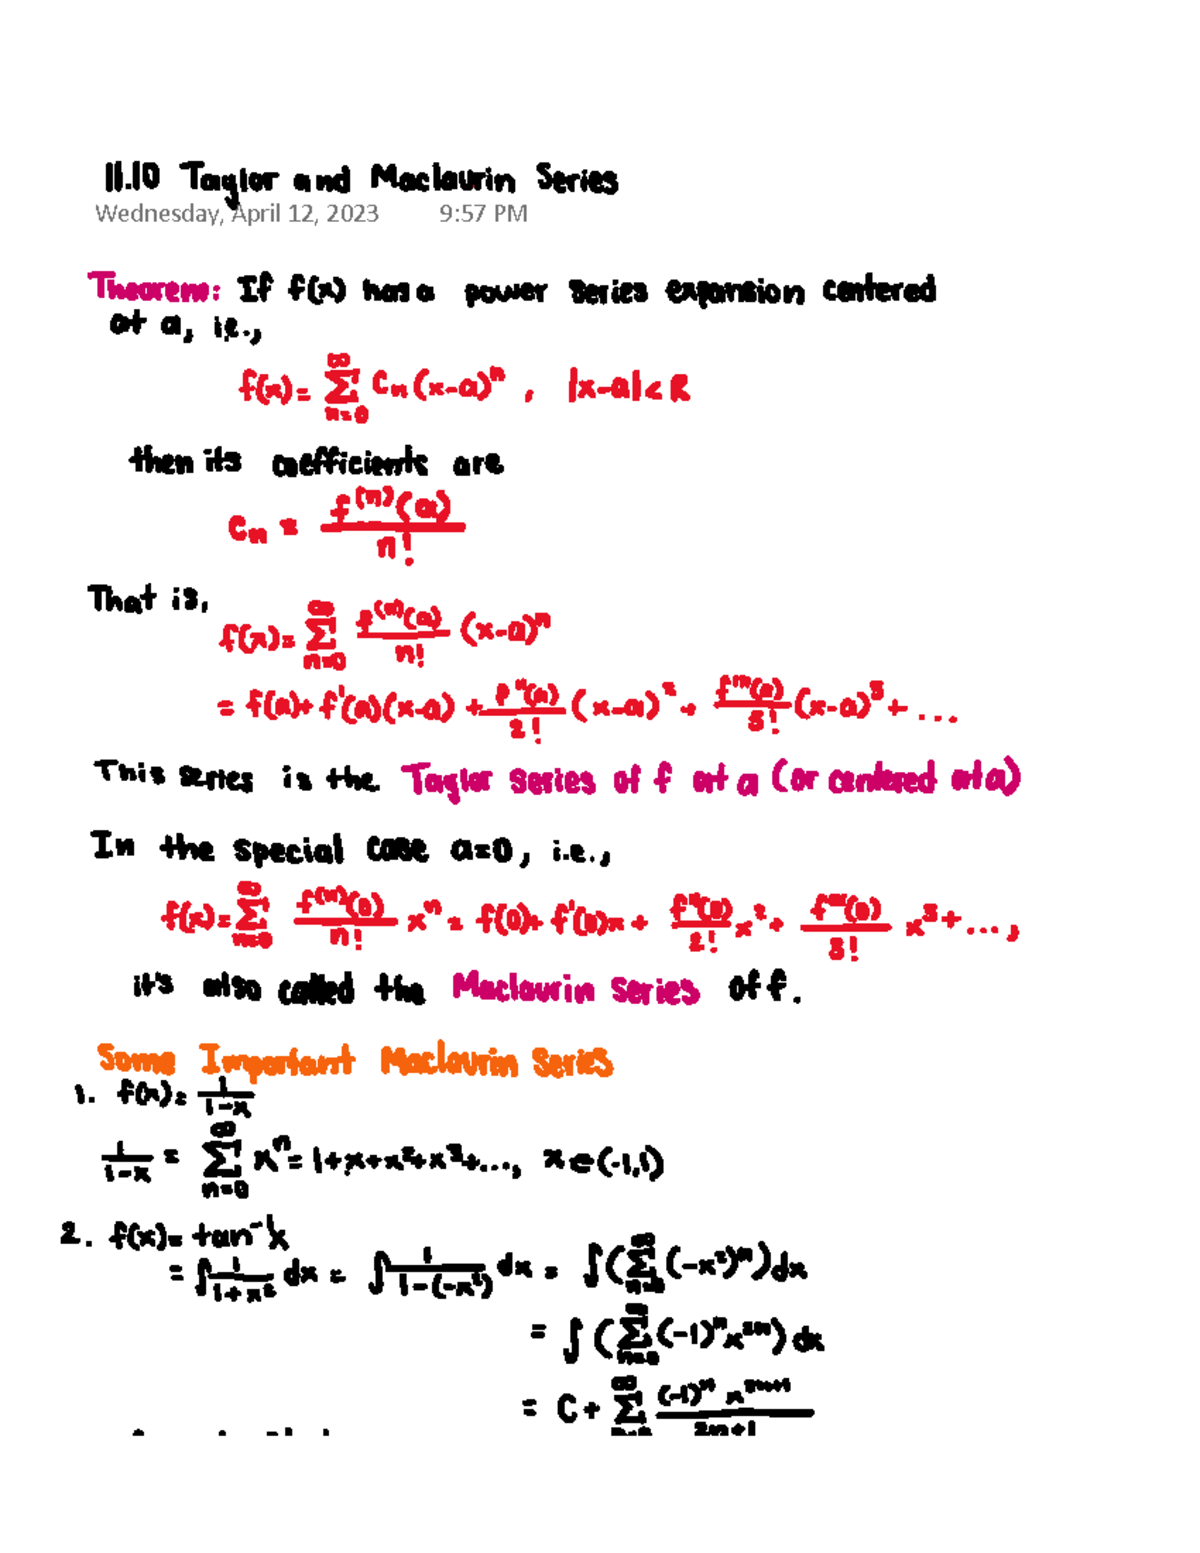 11.10 Taylor and Maclaurin Series
Wednesday, April 12, 2023 9:57 PM
Theorem: If f(x) has a power series expansion centered
at a, i.e.,
f(x) = ∑_{n=0}^{∞} Cₙ (x-a)ⁿ , |x-a| < R
then its coefficients are
Cₙ = f⁽ⁿ⁾(a) / n!
That is,
f(x) = ∑_{n=0}^{∞} f⁽ⁿ⁾(a)/n! (x-a)ⁿ
= f(a) + f'(a)(x-a) + f''(a)/2! (x-a)² + f'''(a)/3! (x-a)³ + ...
This series is the Taylor Series of f at a (or centered at a)
In the special case a=0, i.e.,
f(x) = ∑_{n=0}^{∞} f⁽ⁿ⁾(0)/n! xⁿ = f(0) + f'(0)x + f''(0)/2! x² + f'''(0)/3! x³ + ...,
it's also called the Maclaurin Series of f.
Some Important Maclaurin Series
1. f(x) = 1/(1-x)
1/(1-x) = ∑_{n=0}^{∞} xⁿ = 1+x+x²+x³+..., x ∈ (-1,1)
2. f(x) = tan⁻¹x
= ∫ 1/(1+x²) dx = ∫ 1/(1-(-x²)) dx = ∫ (∑_{n=0}^{∞} (-x²)ⁿ) dx
= ∫ (∑_{n=0}^{∞} (-1)ⁿ x²ⁿ) dx
= C + ∑_{n=0}^{∞} (-1)ⁿ x²ⁿ⁺¹ / 2n+1